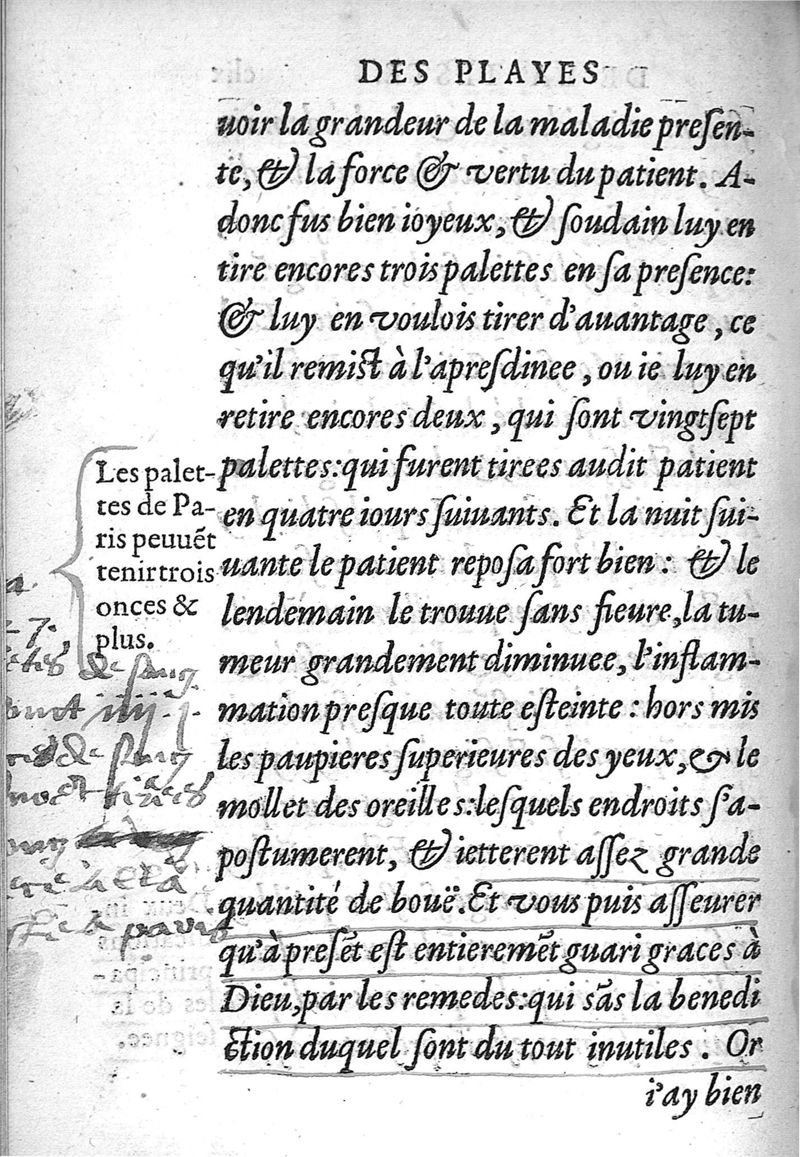 DES PLAYES
uoir la grandeur de la maladie preſen-
te, & la force & vertu du patient. A-
donc fus bien ioyeux, & ſoudain luy en
tire encores trois palettes en ſa preſence:
& luy en voulois tirer d'auantage, ce
qu'il remiſt à l'apreſdinee, ou ie luy en
retire encores deux, qui ſont vingtſept
palettes: qui furent tirees audit patient
en quatre iours ſuiuants. Et la nuit ſui-
uante le patient repoſa fort bien: & le
lendemain le trouue ſans fieure, la tu-
meur grandement diminuee, l'inflam-
mation preſque toute eſteinte: hors mis
les paupieres ſuperieures des yeux, & le
mollet des oreilles: leſquels endroits ſ'a-
poſtumerent, & ietterent aſſez grande
quantité de bouë. Et vous puis aſſeurer
qu'à preſẽt eſt entieremẽt guari graces à
Dieu, par les remedes: qui sãs la benedi
ction duquel ſont du tout inutiles. Or
i'ay bien
Les palet-
tes de Pa-
ris peuuẽt
tenir trois
onces &
plus.
de sang
iiij.
de sang
tirées
a paris